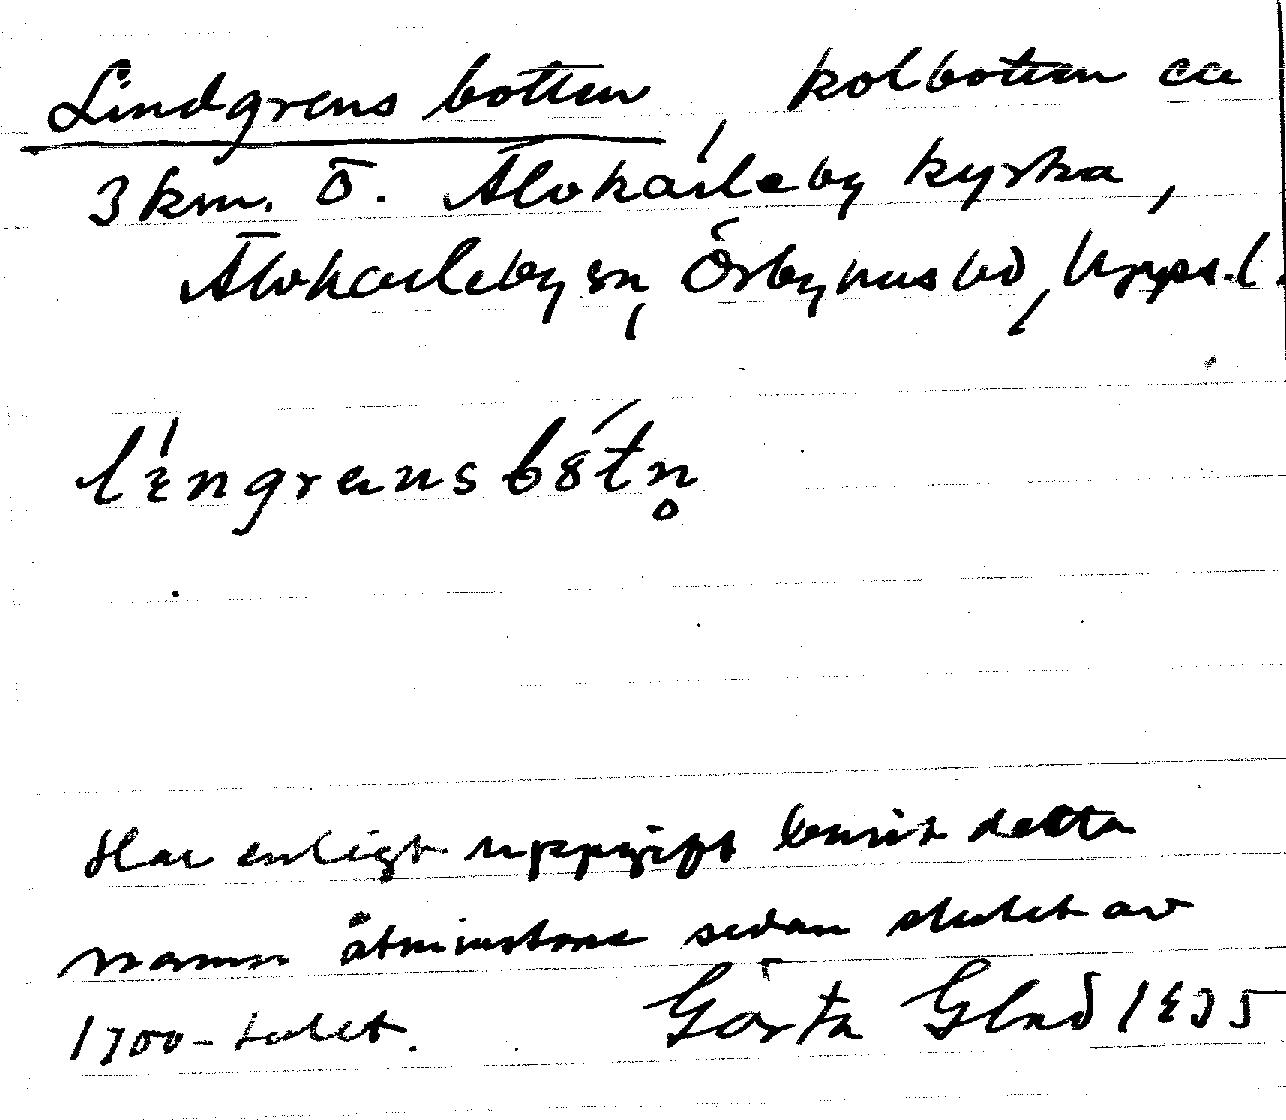 Lindgrens botten, kolbotten ca
3 km. Ö. Älvkarleby kyrka,
Älvkarleby sn, Örbyhus hd, Upps. l.
lìngrans bót
Har enligt uppgift burit detta
namn åtminstone sedan slutet av
1700-talet. Gösta Glad 1935